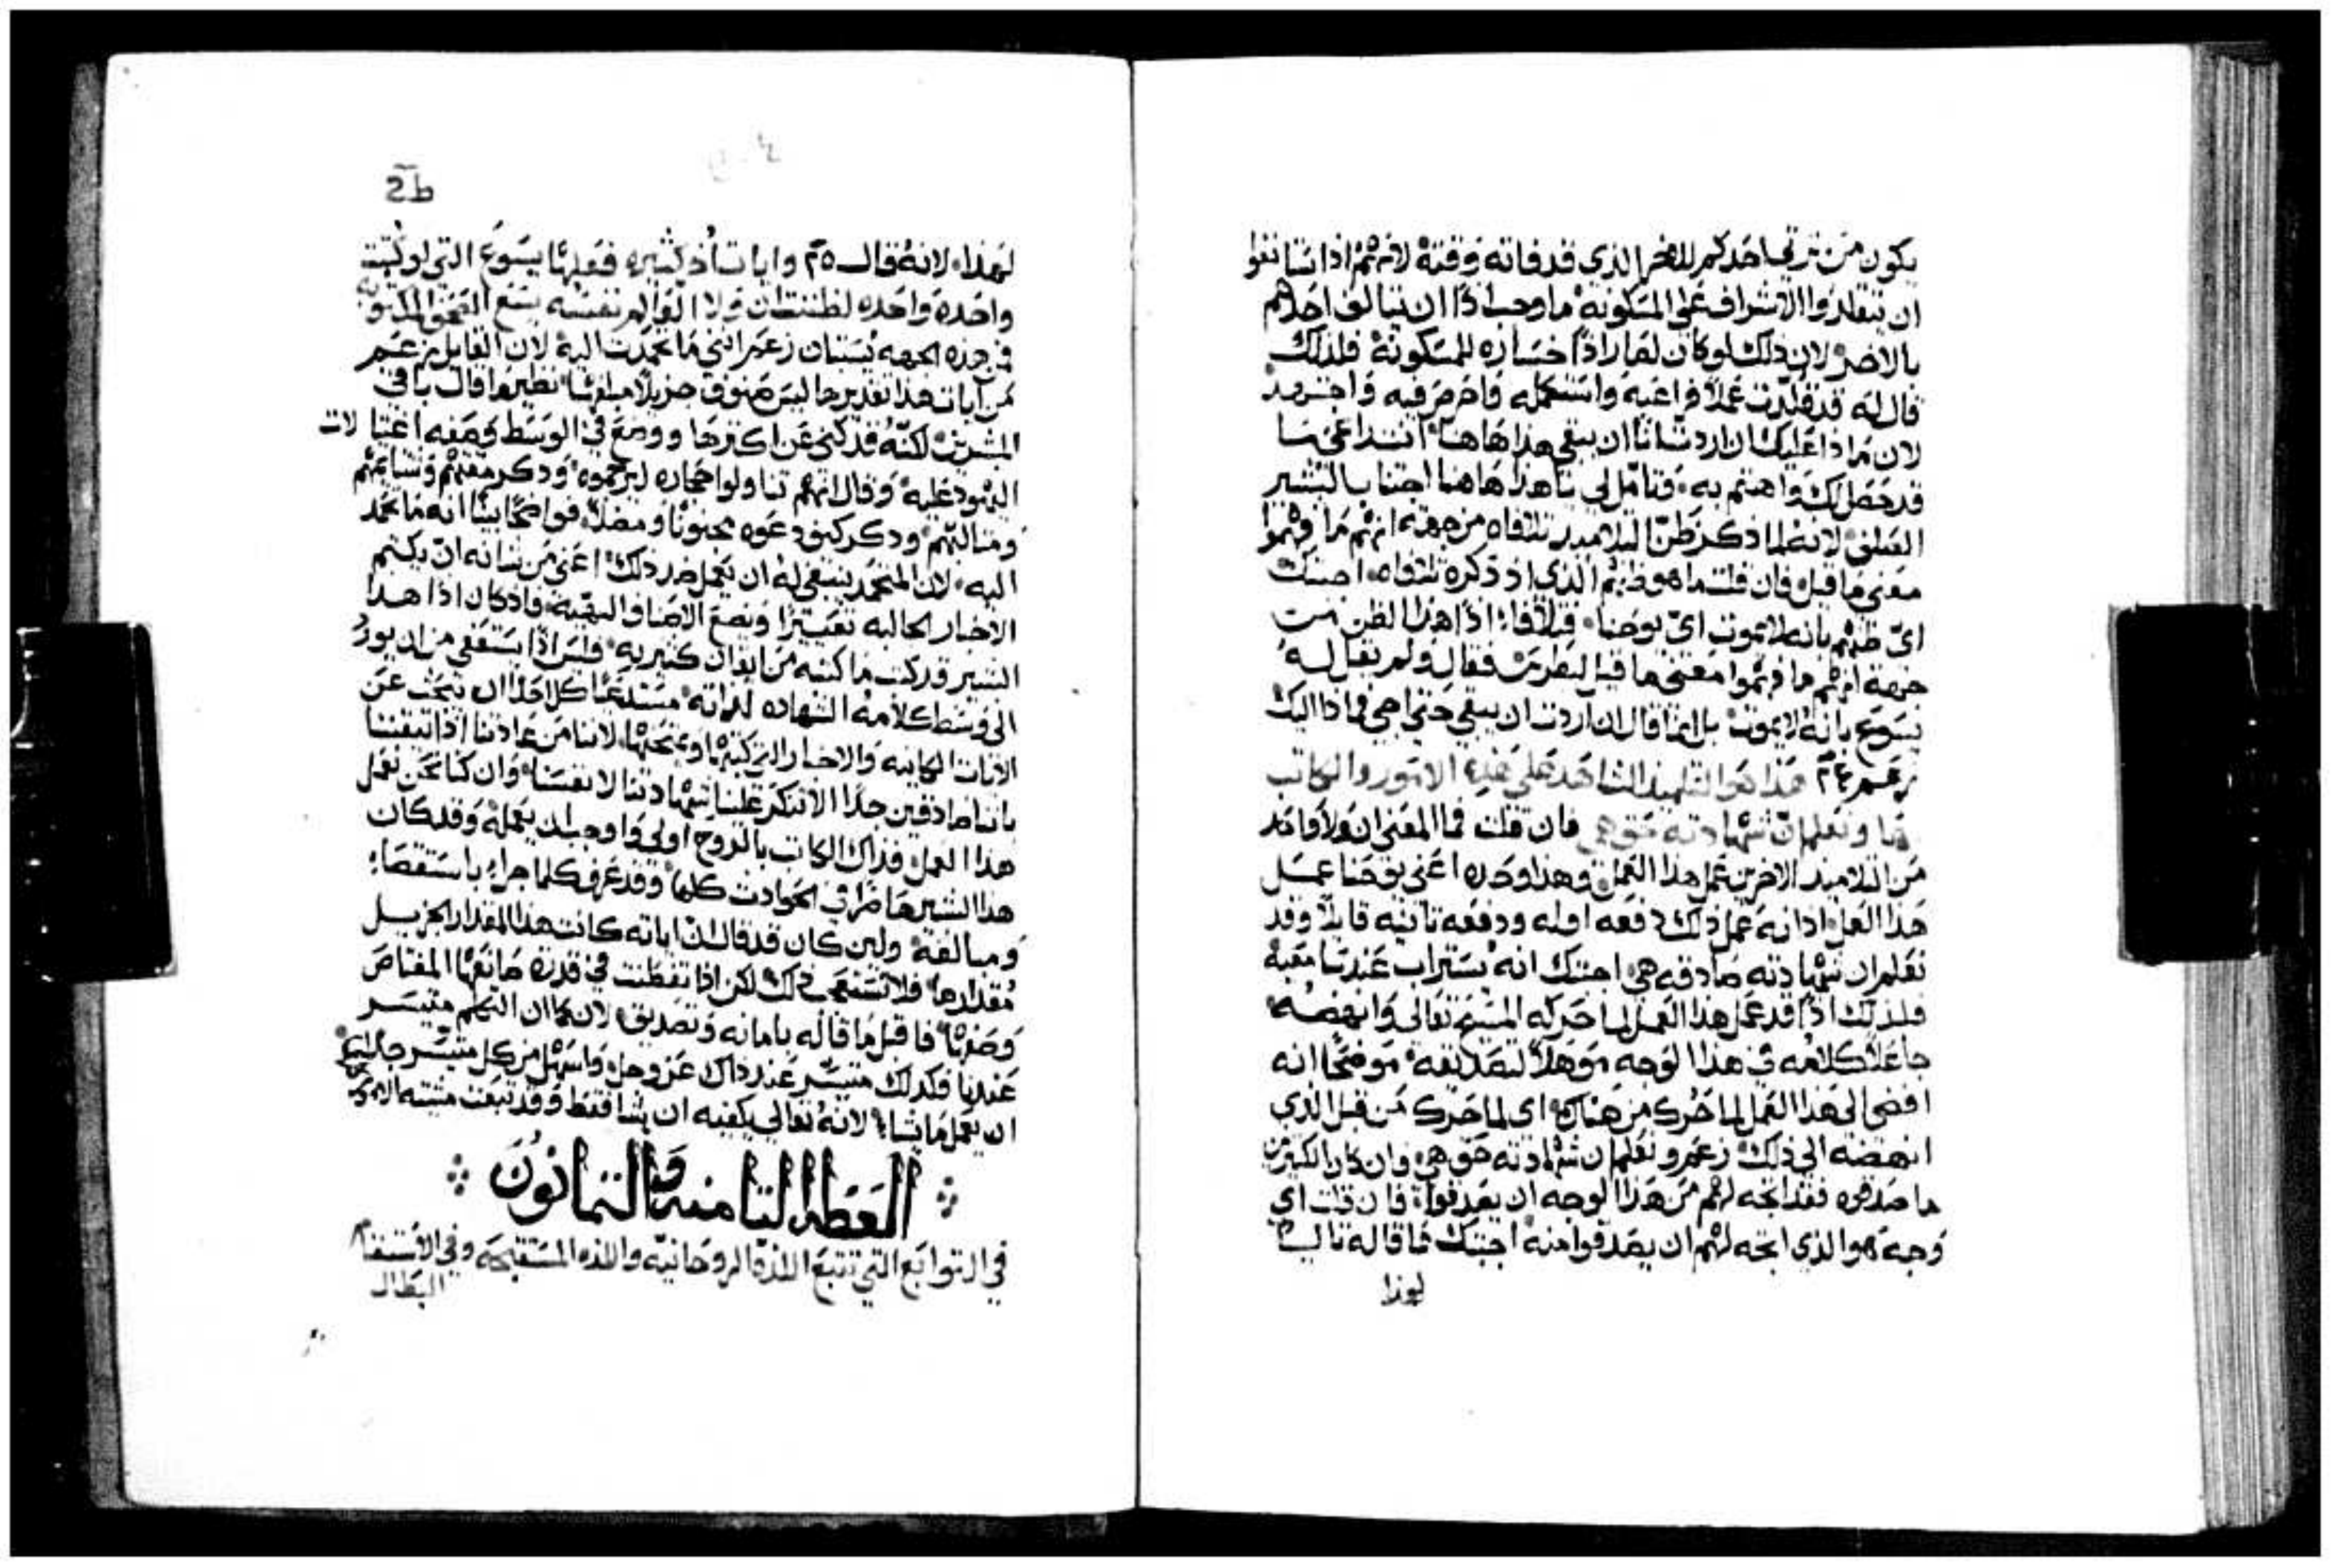 يكون من ترقي احدكم للاخر الذي قد فاته وقته لانهم اذا شانهوا
ان يتقلدوا الاشراف على المسكونه ما وجب اذا ان يتالف احدهم
بالاخر لان ذلك لو كان لصار اذًا خساره للمسكونة فلذلك
قال له قد قلدت عملا فراعيه واستكمله واحرص فيه واجتهد
لان ماذا عليك ان اردت انا ان يبقي هذا هاهنا انت راعي ما
قد حصل لك واهتم به وتامل لي ها هنا اجتناب البشير
الصلف لانه لما ذكر ظن التلاميذ تلافاه من جهة انهم ما فهموا
معنى ما قيل فان قلت ما هو ظنهم الذي اذ ذكره تلافاه اجبتك
اي ظنهم بانه لا يموت اي يوحنا قيلافا اذا هذا الظن من
جهة انهم ما فهموا معنى ما قيل لبطرس فقال ولم يقل له
يسوع بانه لا يموت بل انما قال ان اردت ان يبقي حتى اجي فماذا اليك
زعم ٢٤ هذا هو التلميذ الشاهد على هذه الامور والكاتب
لها ونعلم ان شهادته حق هي فان قلت فما المعنى ان ولا واحد
من التلاميذ الاخرين عمل هذا العمل وهذا وحده اعني يوحنا عمل
هذا العمل اذ انه عمل ذلك دفعه اوله ودفعه تانيه قايلا وقد
نعلم ان شهادته صادقه هي اجبتك انه يستراب عندنا مغبة
فلذلك اذًا قد عمل هذا العمل لما حركه المسيح تعالى وانهضه
جاعلا كلامه في هذا الوجه موهلا لتصديقه موضحا انه
افضى الى هذا العمل لما حُرك من هناك اي لما حرك من قبل الذي
انهضه الى ذلك زعم ونعلم ان شهادته حق هي وان كان الكثيرين
ما صدقوه فقد اتجه لهم من هذا الوجه ان يصدقوا فان قلت اي
وجه هو الذي اتجه لهم ان يصدقوا منه اجبتك ما قاله تاليا
لهذا
لهذا لانه قال ٢٥ وايات أخر كثيره فعلها يسوع التي لو كتبت
واحده واحده لظننت ان ولا العالم نفسه يسع الصحف المكتوبه
من هذه الجهه يستبان زعم انني ما تحمدت اليه لان القايل بزعم
من ايات هذا تقديرها ليس هنوف جزيلا مبلغها نظير ما قال باقي
المبشرين لكنه قد كنى عن اكثرها ووضع في الوسط وصفه اغتيالات
اليهود عليه وقال انهم تناولوا حجاره ليرجموه وذكر مقتهم وشتايمهم
ومثالبهم وذكر كيف دعوه مجنونًا ومضلًا فواضحًا بينًا انه ما تحمد
اليه لان المتحمد ينبغي له ان يعمل ضد ذلك اعني من شانه ان يكتم
الاخبار الجالبه تعييرًا ويضع الاصناف البهية فاذ كان اذا هذا
البشير قد كتب ما كتبه من ايقان كثير به فليس اذًا يستعفي من ان يورد
الى وسط كلامه الشهاده لذاته مستدعيًا كل احد ان يبحث عن
الايات الكاينه والاخبار التي كتبها ويمتحنها لاننا من عادتنا اذا تيقننا
باننا صادقين جدًا الا ننكر علينا شهادتنا لانفسنا وان كنا نحن نعمل
هذا العمل فذاك الكاتب بالروح اولى واوجب ان يعمله وقد كان
هذا البشير حاضرًا في الحوادث كلها وقد عرف كلما جرا باستقصاء
ومبالغة ولين كان قد قال ان اياته كانت هذا المقدار الجزيل
مقدارها فلا تستعجب ذلك لكن اذا تفطنت في قدرة صانعها المعتاص
وصفها فاقبل ما قاله بامانه وتصديق لان كما ان التكلم متيسر
عندنا فكذلك متيسر عند ذاك عز وجل واسهل من كل متيسر
ان يعمل ما يشاء لانه تعالى يكفيه ان يشا فقط وقد تبعت مشيته الامور
العظه الثامنه والثمانون
في التوابع التي تتبع اللذة الروحانيه واللذه المستقبحه وفي الاستغنام
البطال